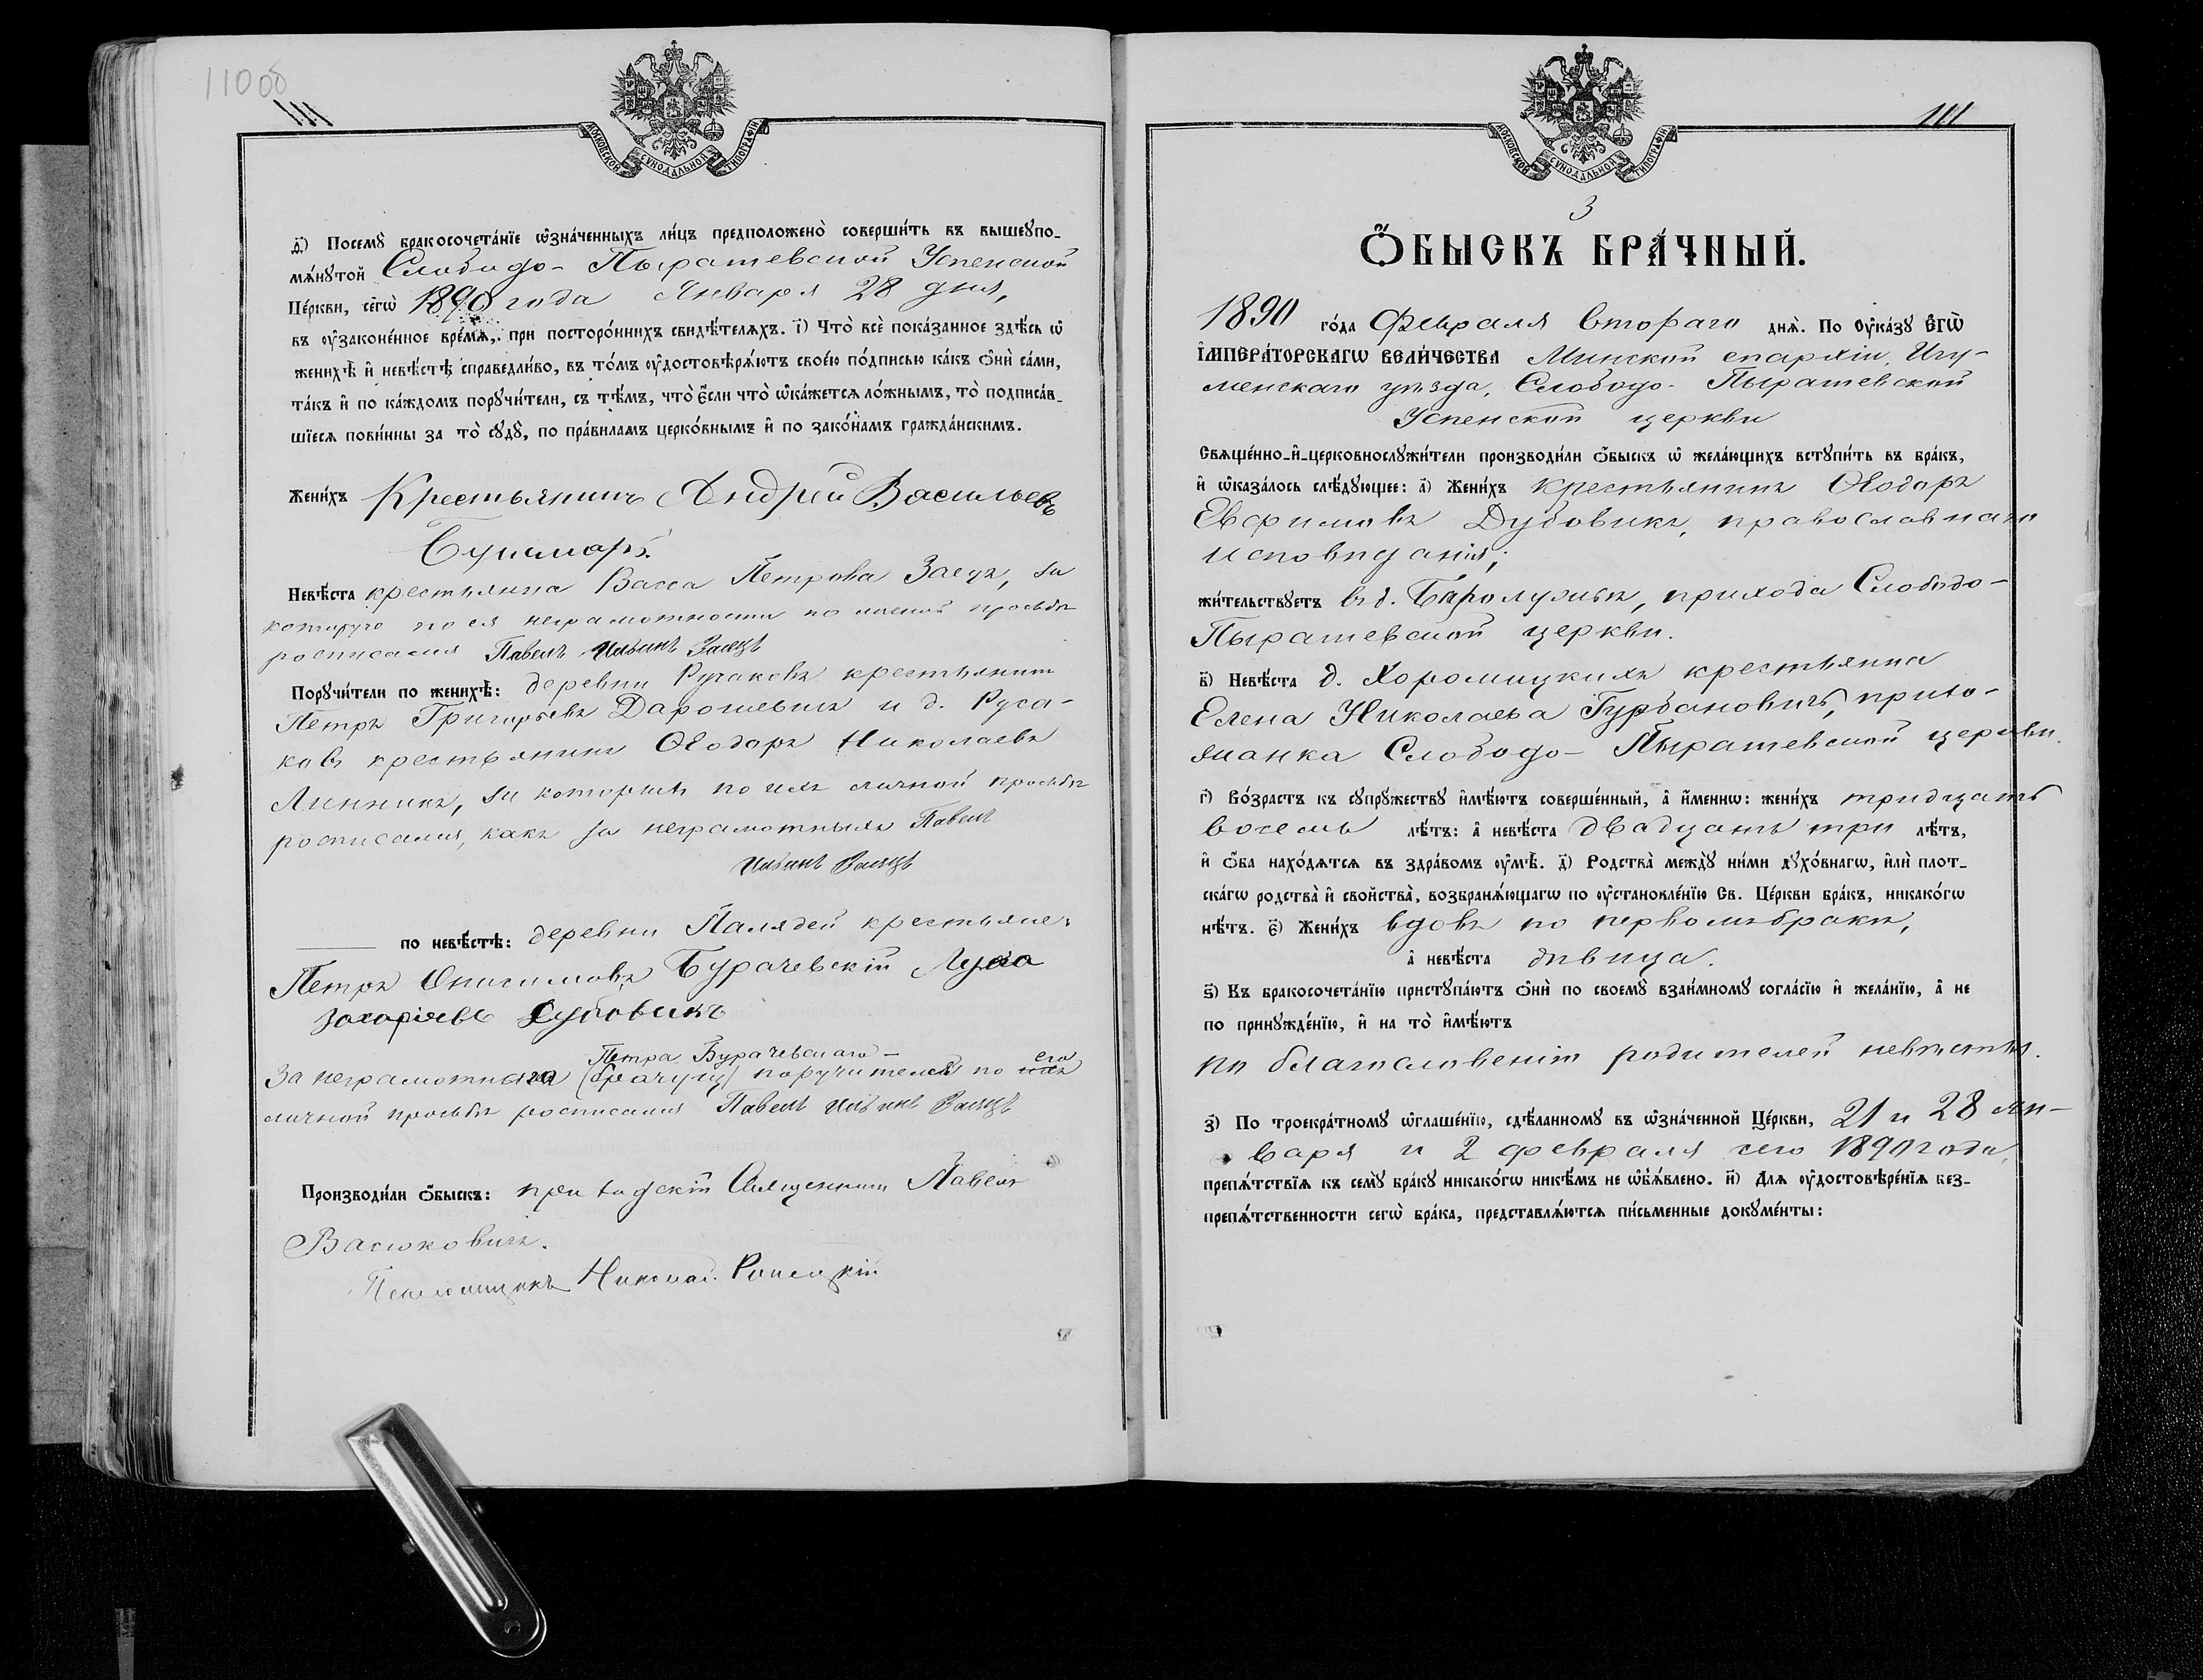 110об
111
МОСКОВСКОЙ СѴНОДАЛЬНОЙ ТИПОГРАФІИ
ѳ҃) Посемꙋ̀ бракосочета́нїе ѡ҆зна́ченныхъ ли́цъ предположено̀ соверши́ть въ вышеꙋпо-
мѧ́нꙋтой Слободо-Пырашевской Успенской
Це́ркви, сегѡ̀ 1890 года Января 28 дня,
въ ᲂу҆законе́нное вре́мѧ, при посторо́ннихъ свидѣ́телѧхъ. і҃) Что̀ всѐ пока́занное здѣ́сь ѡ҆
женихѣ̀ и҆ невѣ́стѣ справедли́во, въ то́мъ ᲂу҆достовѣрѧ́ютъ свое́ю по́дписью ка́къ ѻ҆нѝ са́ми,
та́къ и҆ по ка́ждомъ порꙋчи́тели, съ тѣ́мъ, что̀ є҆́сли что̀ ѡ҆ка́жетсѧ ло́жнымъ, то̀ подписа́в-
шїесѧ пови́нны за то̀ сꙋдꙋ̀, по пра́виламъ церко́внымъ и҆ по зако́намъ гражда́нскимъ.
Жени́хъ Крестьянинъ Андрей Васильевъ
Бушмаръ.
Невѣ́ста крестьянка Васса Петрова Заецъ, за
которую по ея неграмотности по личной просьбѣ
росписался Павелъ Ильинъ Заяцъ
Порꙋчи́тели по женихѣ̀: деревни Русаковъ крестьянинъ
Петръ Григорьевъ Дарошевичъ и д. Руса-
ковъ крестьянинъ Ѳеодоръ Николаевъ
Линникъ, за которыхъ по ихъ личной просьбѣ
росписался, какъ за неграмотныхъ Павелъ
Ильинъ Заяцъ
по невѣ́стѣ: деревни Палядей крестьяне:
Петръ Онисимовъ Бурачевскій Лука
Захаріевъ Дубовикъ
Петра Бурачевскаго —
За неграмотнаго поручителя по его
личной просьбѣ росписался Павелъ Ильинъ Заяцъ
Производи́ли ѻ҆́быскъ: приходскій Священникъ Павелъ
Васюковичъ.
Псаломщикъ Николай
111
МОСКОВСКОЙ СѴНОДАЛЬНОЙ ТИПОГРАФІИ
3
Ѻ҆́БЫСКЪ БРА́ЧНЫЙ.
1890 го́да Февраля втораго днѧ̀. По ᲂу҆ка́зꙋ Е҆ГѠ̀
І҆МПЕРА́ТОРСКАГѠ ВЕЛИ́ЧЕСТВА Минской епархіи, Игу-
менскаго уѣзда, Слободо-Пырашевской
Успенской церкви
Свѧще́нно-и҆-церковнослꙋжи́тели производи́ли ѻ҆́быскъ ѡ҆ жела́ющихъ встꙋпи́ть въ бра́къ,
и҆ ѡ҆каза́лось слѣ́дꙋющее: а҃) Жени́хъ крестьянинъ Ѳеодоръ
Евфимовъ Дубовикъ, православнаго
исповѣданія;
жи́тельствꙋетъ въ д. прихода Слободо-
Пырашевской церкви.
в҃) Невѣ́ста д. Хоромицкихъ крестьянка
Елена Николаева Гурбановичъ, прихо-
жанка Слободо-Пырашевской церкви.
г҃) Во́зрастъ къ сꙋпрꙋ́жествꙋ и҆мѣ́ютъ соверше́нный, а҆ и҆́менно: жени́хъ тридцать
восемь лѣ́тъ: а҆ невѣ́ста двадцать три лѣ́тъ,
и҆ ѻ҆́ба нахо́дѧтсѧ въ здра́вомъ ᲂу҆мѣ̀. д҃) Родства̀ междꙋ̀ ни́ми дꙋхо́внагѡ, и҆лѝ плот-
ска́гѡ родства̀ и҆ свойства̀, возбранѧ́ющагѡ по ᲂу҆становле́нїю Св. Це́ркви бра́къ, никако́гѡ
нѣ́тъ. є҃) Жени́хъ вдовъ по первомъ бракѣ,
а҆ невѣ́ста дѣвица.
ѕ҃) Къ бракосочета́нїю пристꙋпа́ютъ ѻ҆нѝ по своемꙋ̀ взаи́мномꙋ согла́сїю и҆ жела́нїю, а҆ не
по принꙋжде́нїю, и҆ на то̀ и҆мѣ́ютъ
по благословенію родителей невѣсты.
з҃) По троекра́тномꙋ ѡ҆глаше́нїю, сдѣ́ланномꙋ въ ѡ҆зна́ченной Це́ркви, 21 и 28 ян-
варя и 2 февраля сего 1890 года,
препѧ́тствїѧ къ семꙋ̀ бра́кꙋ никако́гѡ никѣ́мъ не ѡ҆б̾ѧ́влено. и҃) Длѧ ᲂу҆достовѣре́нїѧ без-
препѧ́тственности сегѡ̀ бра́ка, представлѧ́ютсѧ пи́сьменные докꙋме́нты: